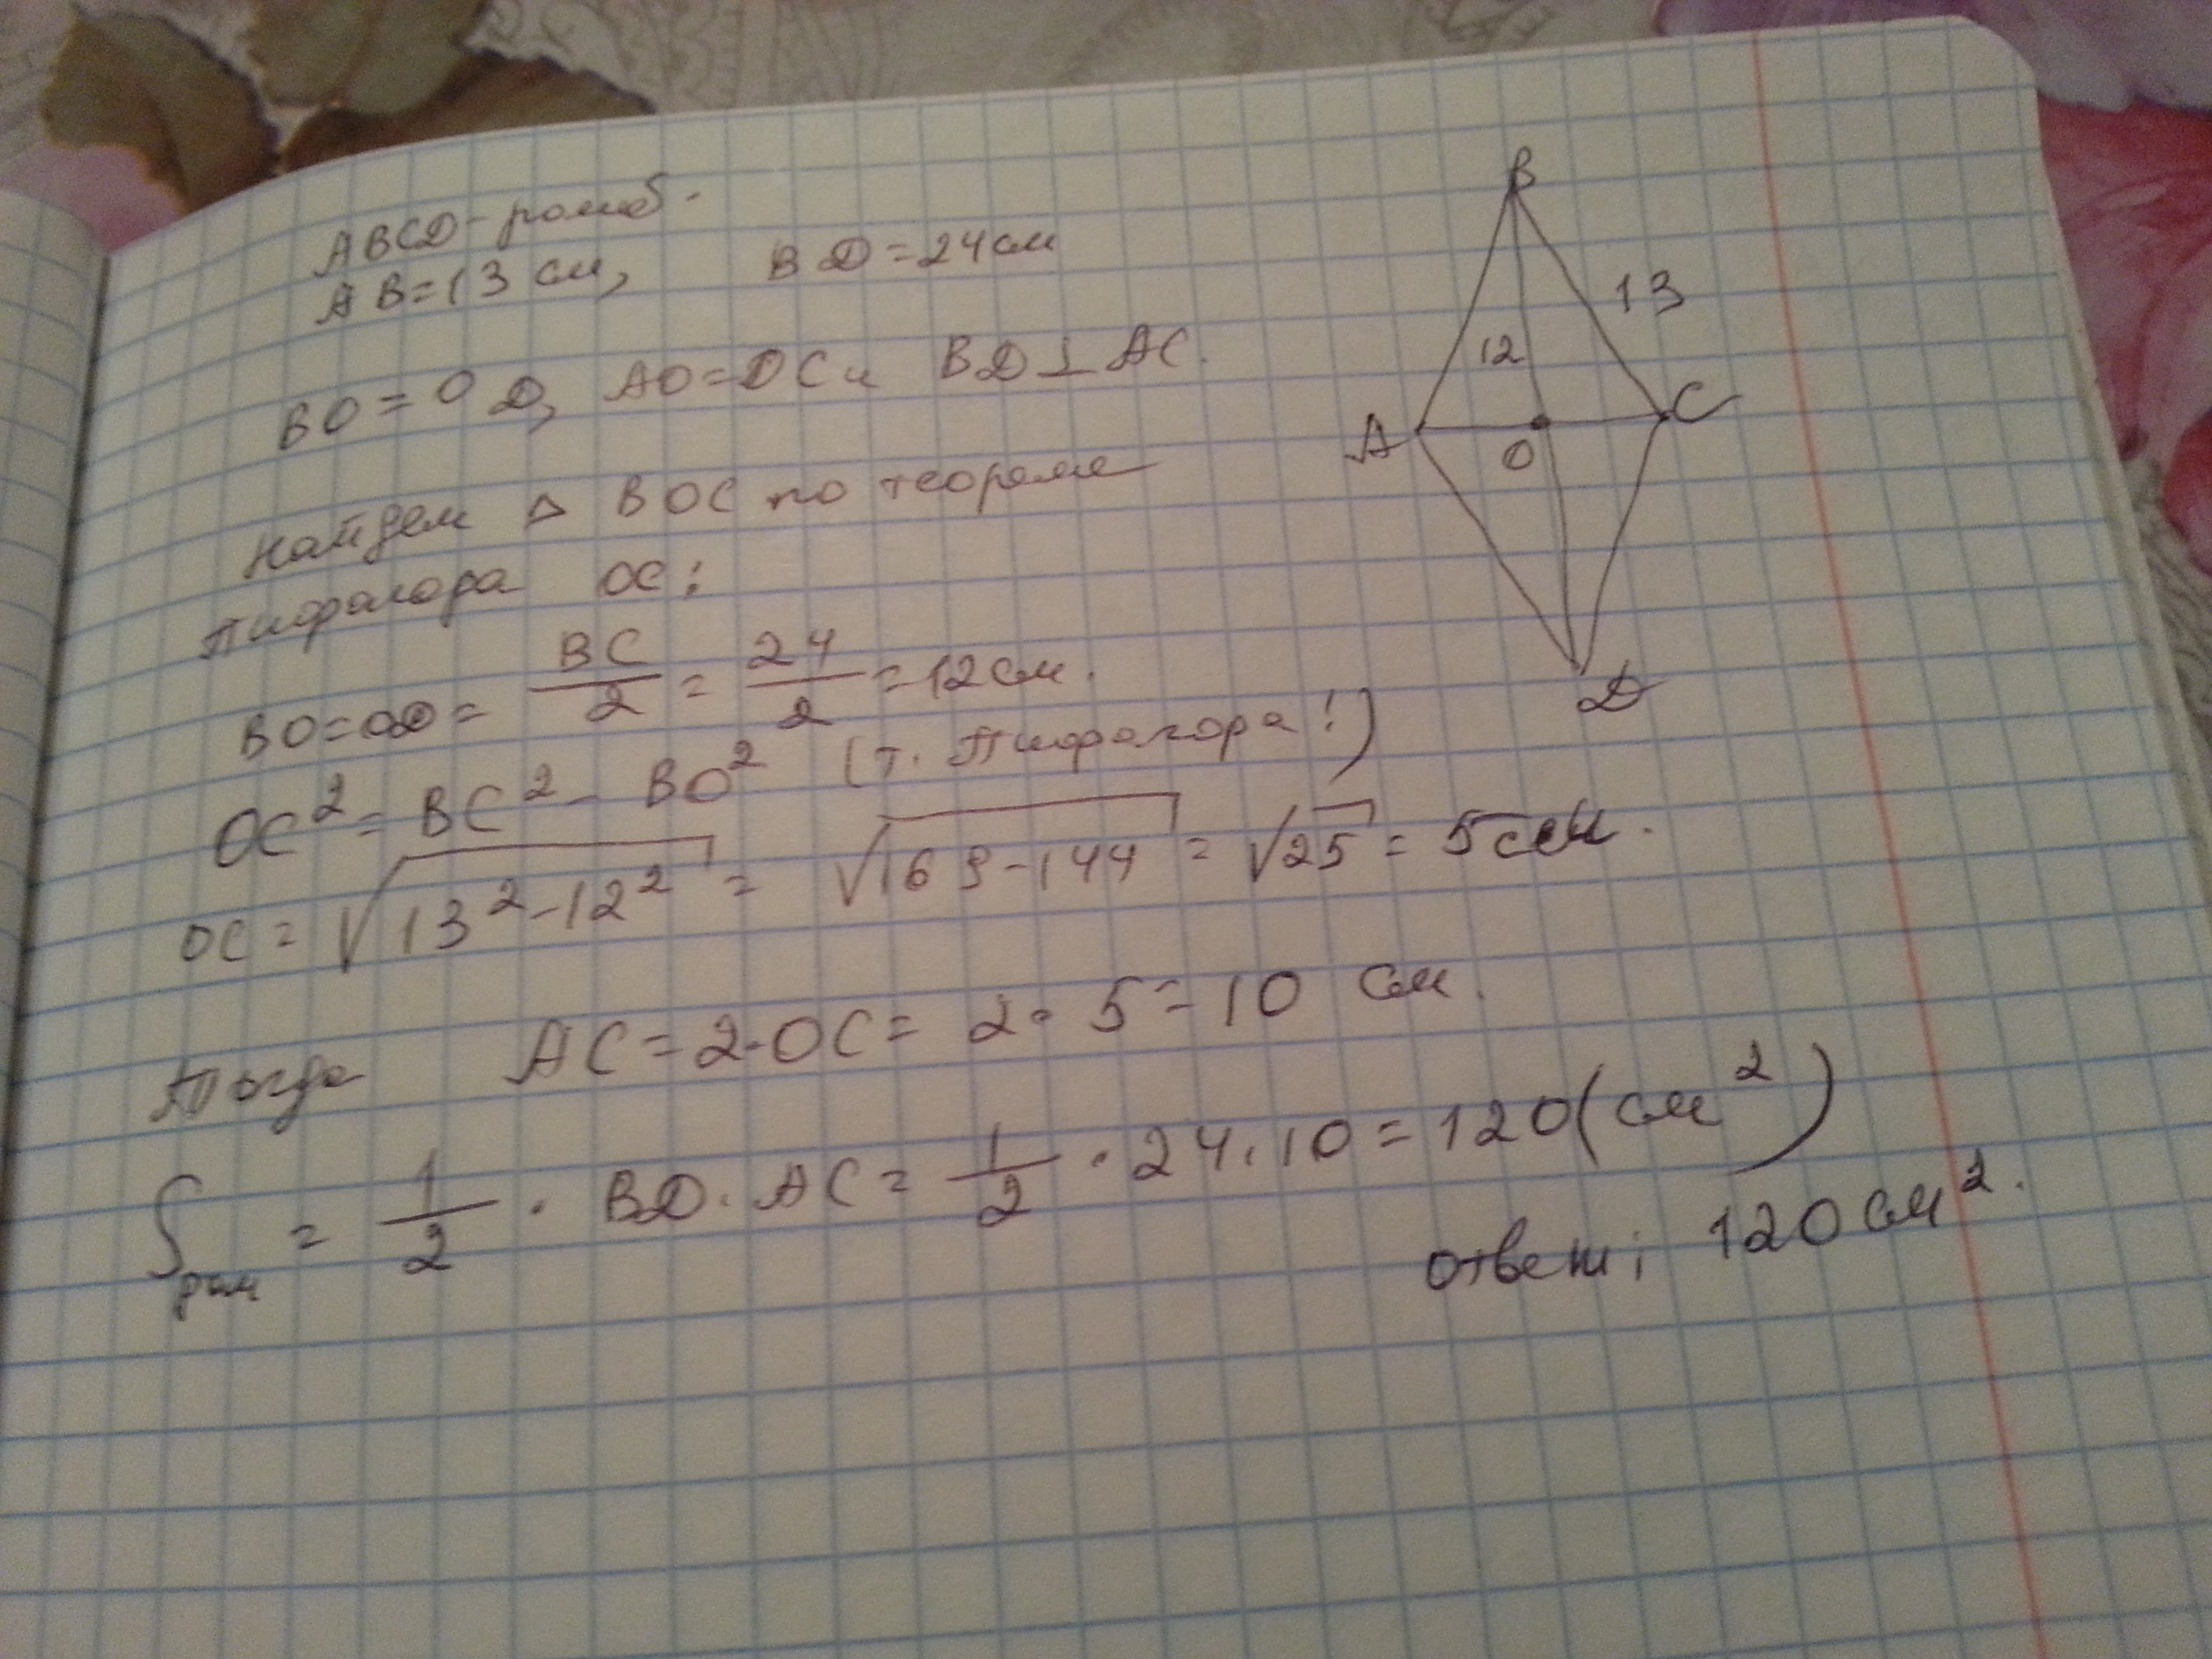 ABCD - ромб.
AB = 13 см, BD = 24 см
BO = OD, AO = OC и BD ⊥ AC.
Найдем △ BOC по теореме
Пифагора OC:
BO = OD = BC/2 = 24/2 = 12 см.
OC² = BC² - BO² (т. Пифагора!)
OC = √13² - 12² = √169 - 144 = √25 = 5 см.
Тогда AC = 2 · OC = 2 · 5 = 10 см.
S = 1/2 · BD · AC = 1/2 · 24 · 10 = 120 (см²)
ответ: 120 см².
B
13
12
A
O
C
D